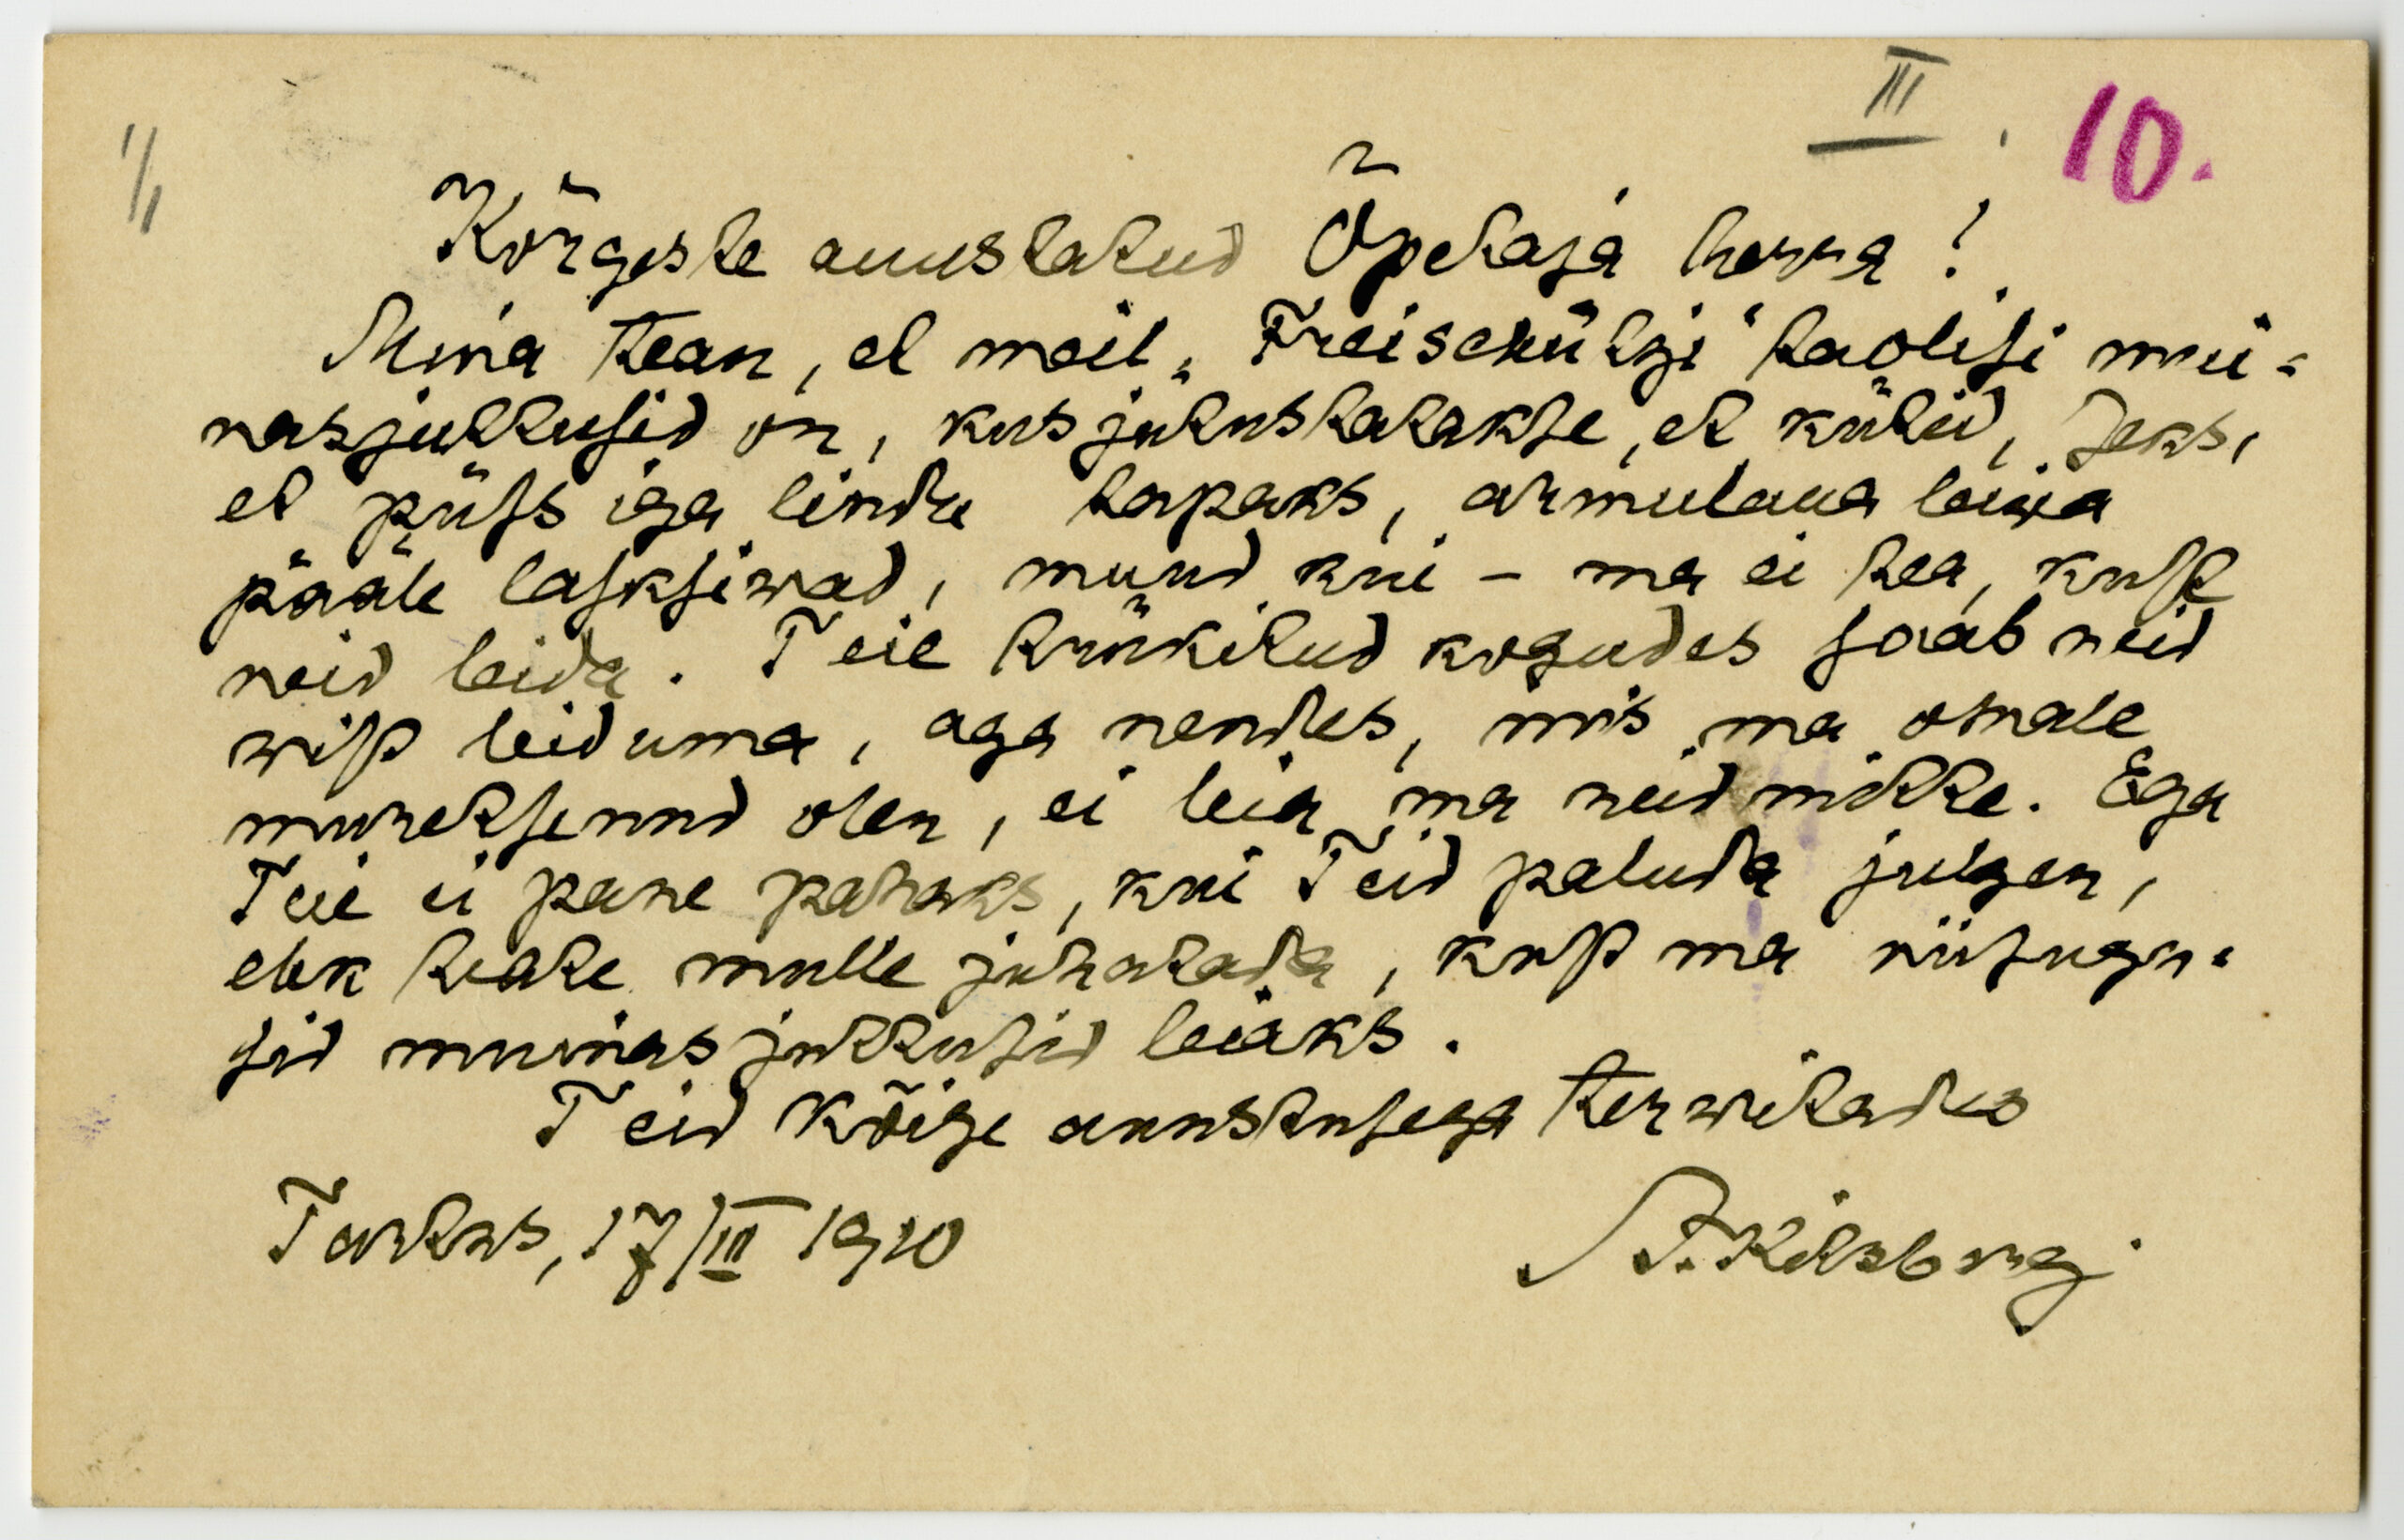 III. 10.
1/1
Kõrgeste auustatud Õpetaja herra!
Mina tean, et meil „Freischützi“ taolisi mui-
nasjuttusid on, kus jutustatakse, et kütid, seks,
et püss iga lindu tapaks, armulaua leiwa
pääle lasksiwad, muud kui – ma ei tea, kust
neid leida. Teie trükitud kogudes saab neid
wist leiduma, aga nendes, mis ma omale
muretsenud olen, ei leia ma neid mitte. Ega
Teie ei pane pahaks, kui Teid paluda julgen,
ehk teate mulle juhatada, kust ma niisugu-
sid muinasjuttusid leiaks.
Teid kõige auustusega terwitades
Tartus, 17/III 1910
A. Kitzberg.